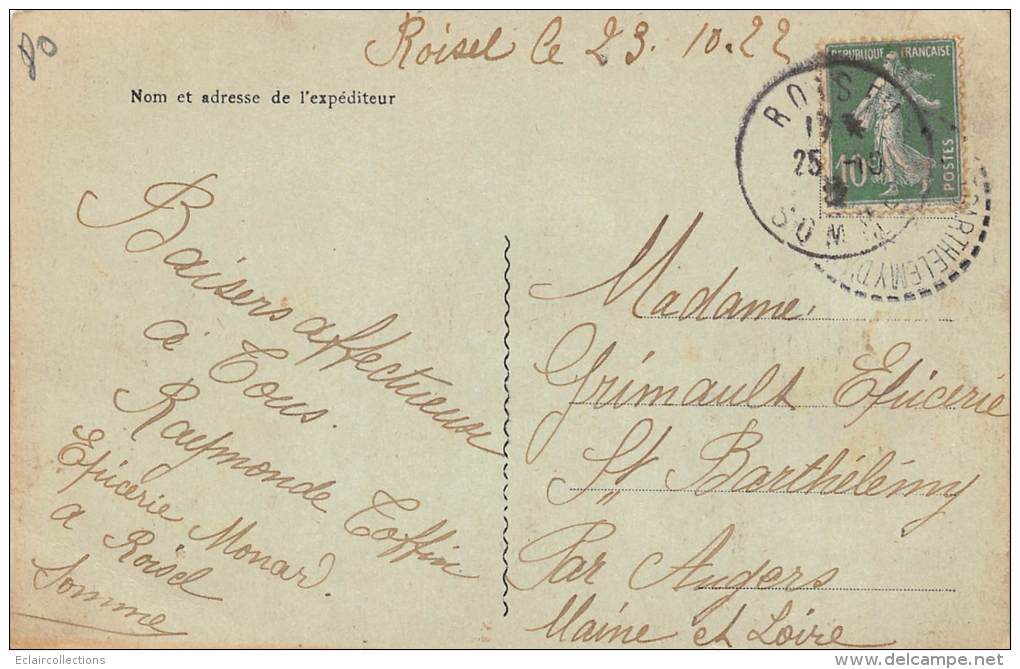 80
Roisel le 23.10.22
Nom et adresse de l'expéditeur
RÉPUBLIQUE FRANÇAISE
10
POSTES
ROISEL
25 -10
SOMME
BARTHELEMY D'
Baisers affectueuse
à Tous.
Raymonde Toffin
Epicerie Monard.
a Roisel
Somme
Madame,
Grimault Epicerie
St Barthélémy
Par Angers
Maine et Loire
Eclaircollections
delcampe.net